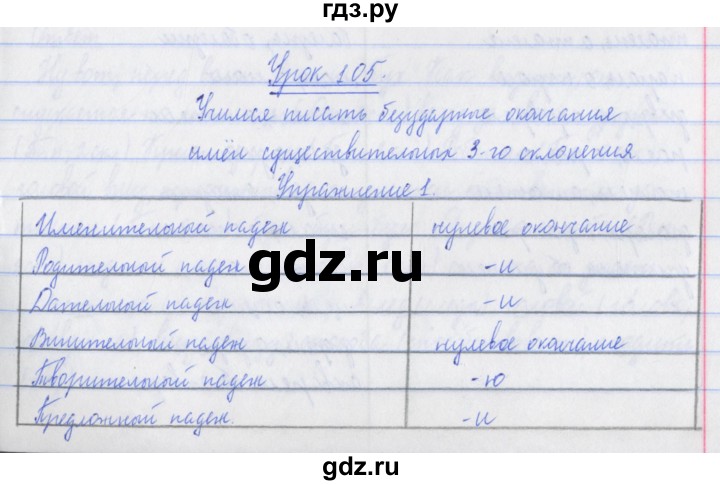 гдз.ру
Урок 105.
Учимся писать безударные окончания
имён существительных 3-го склонения
Упражнение 1.
Именительный падеж нулевое окончание
Родительный падеж -и
gdz.ru
Дательный падеж -и
Винительный падеж нулевое окончание
Творительный падеж -ю
Предложный падеж. -и
gdz.ru